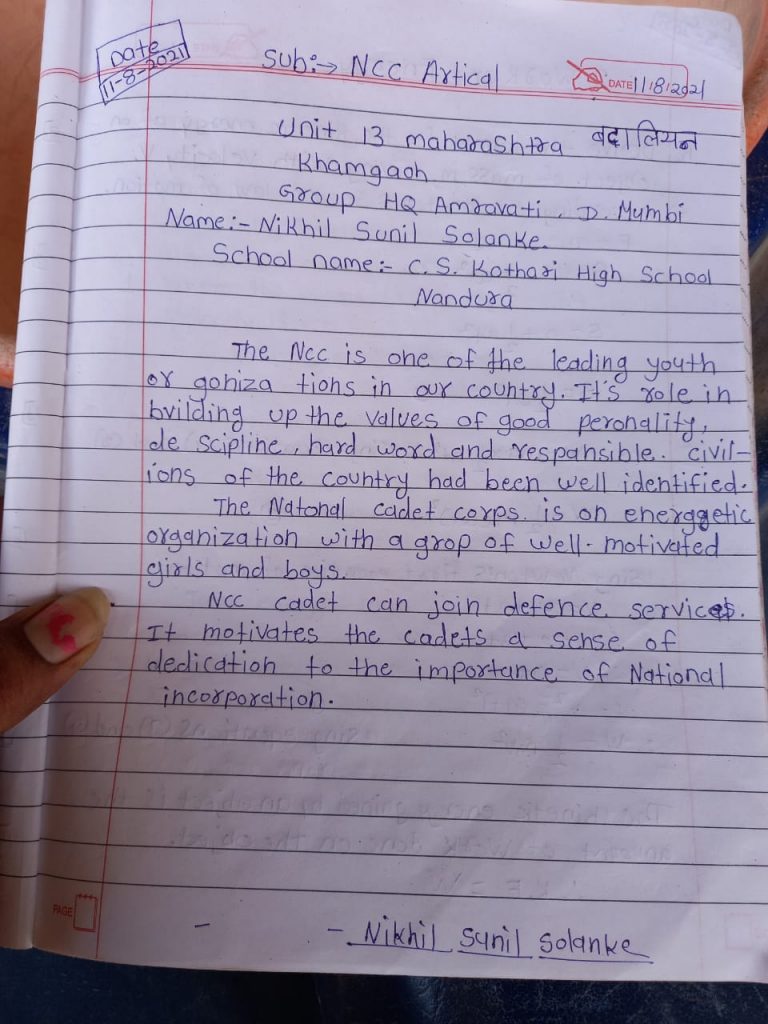 Date
11-8-2021
Sub:→ NCC Artical
DATE 11/8/2021
Unit 13 maharashtra बटालियन
Khamgaoh
Group HQ Amravati, D. Mumbi
Name:- Nikhil Sunil Solanke.
School name:- C.S. Kothari High School
Nandura
The NCC is one of the leading youth
or gohiza tions in our country. It's role in
building up the values of good peronality,
de scipline, hard word and respansible. civil-
ions of the country had been well identified.
The Natonal cadet corps. is on energgetic
organization with a grop of well-motivated
girls and boys.
NCC cadet can join defence services.
It motivates the cadets a sense of
dedication to the importance of National
incorporation.
PAGE
- - Nikhil Sunil Solanke